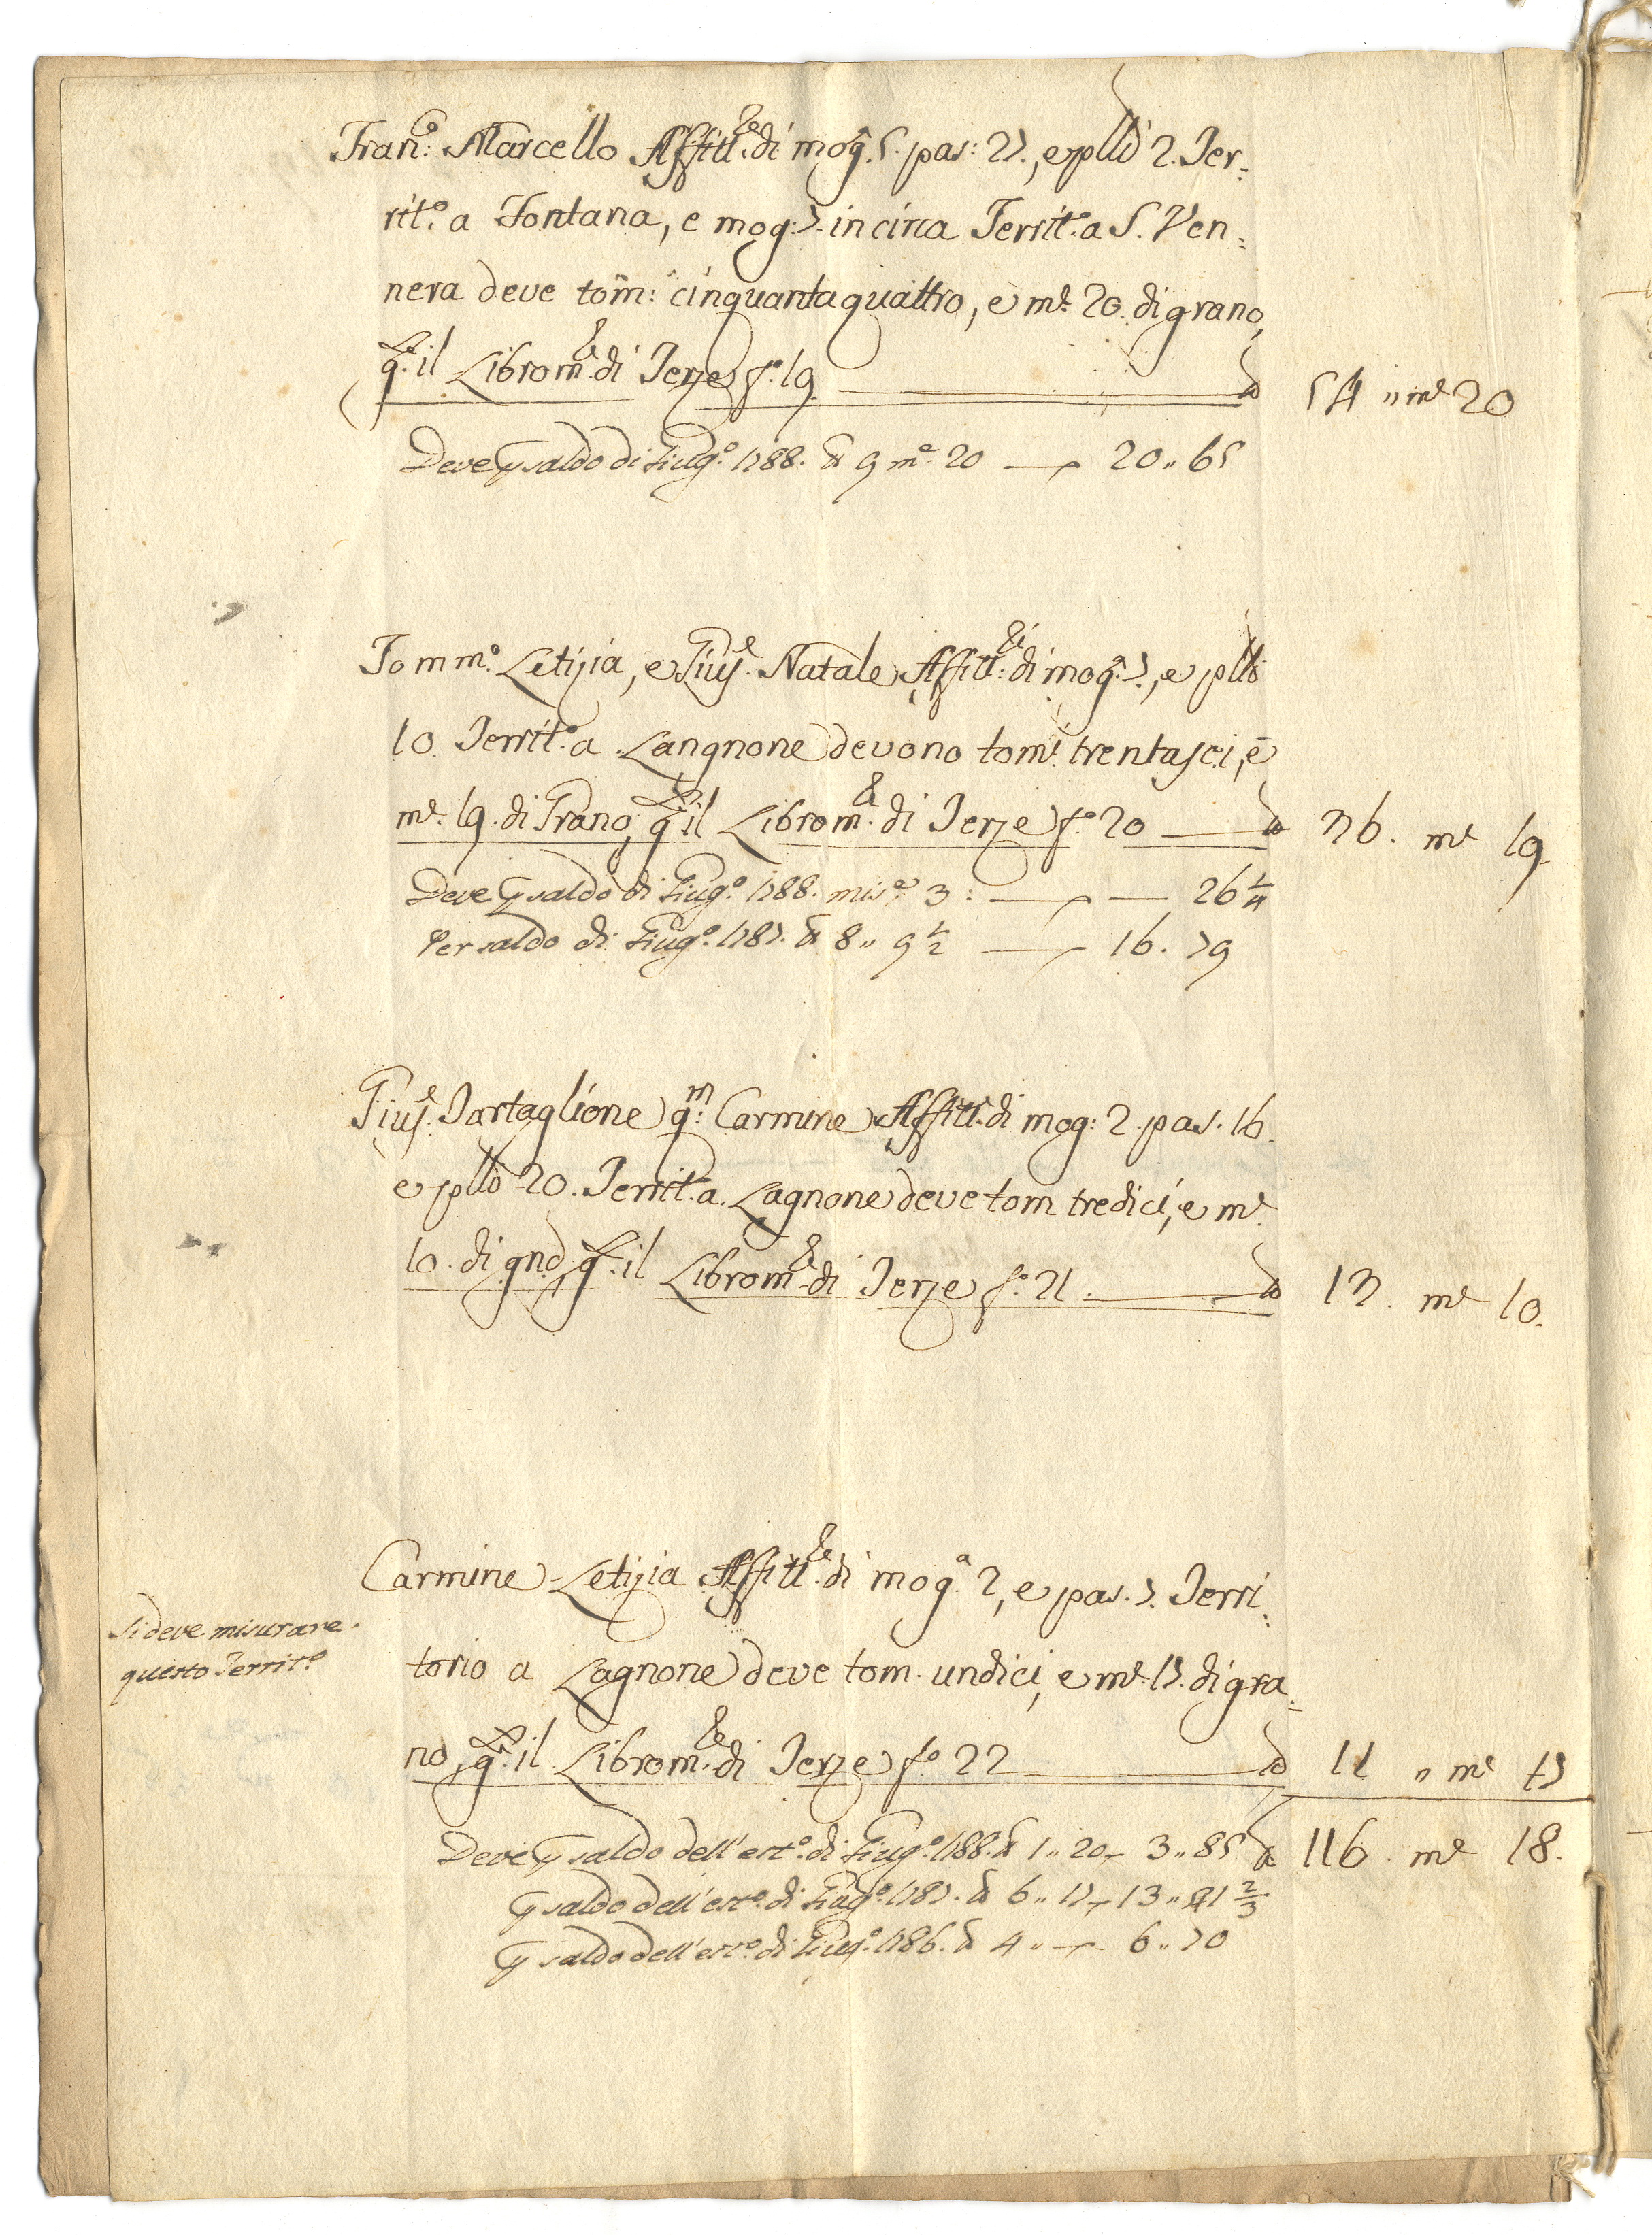 Fran:co Marcello Affitt.re di mog. 5. pas: 27., e plli 2. Ter-
rit.o a Fontana, e mog: 7. in circa Territ.o a S. Ven-
nera deve tom: cinquantaquattro, e m.e 20. di grano,
q.le il Librom.re di Terze f.o 19. 54 " m.e 20
Deve p saldo di Giug.o 1788. t.a 9 m.e 20 — 20 " 65
Tomm.o Letizia, e Gius.e Natale Affitt.ri di mog.a 7., e plli
10. Territ.o a Langnone devono tom.i trentasei, e
m.e 19. di Grano, q.le il Librom.re di Terze f.o 20 — 36. m.e 19
Deve p saldo di Giug.o 1788. mis.e 3: — 26 1/4
Per saldo di Giug.o 1787. t.a 8 " 9 1/2 — 16. 79
Gius.e Tartaglione q.m Carmine Affitt.re di mog: 2. pas. 16.
e plli 20. Territ.o a Lagnone deve tom tredici, e m.e
10. di gnd, q.le il Librom.re di Terze f.o 21. — 13. m.e 10.
Carmine Letizia Affitt.re di mog.a 2, e pas. 7. Terri-
Si deve misurare
questo Territ.o
torio a Lagnone deve tom. undici, e m.e 17. di gra-
no, q.le il Librom.re di Terze f.o 22 — 11 " m.e 17
Deve p saldo dell'est.o di Giug.o 1788. t.a 1 " 20 — 3 " 85 116. m.e 18.
p saldo dell'est.o di Giug.o 1787. t.a 6 " 17 — 13 " 41 2/3
p saldo dell'est.o di Giug.o 1786. t.a 4 " — 6 " 70